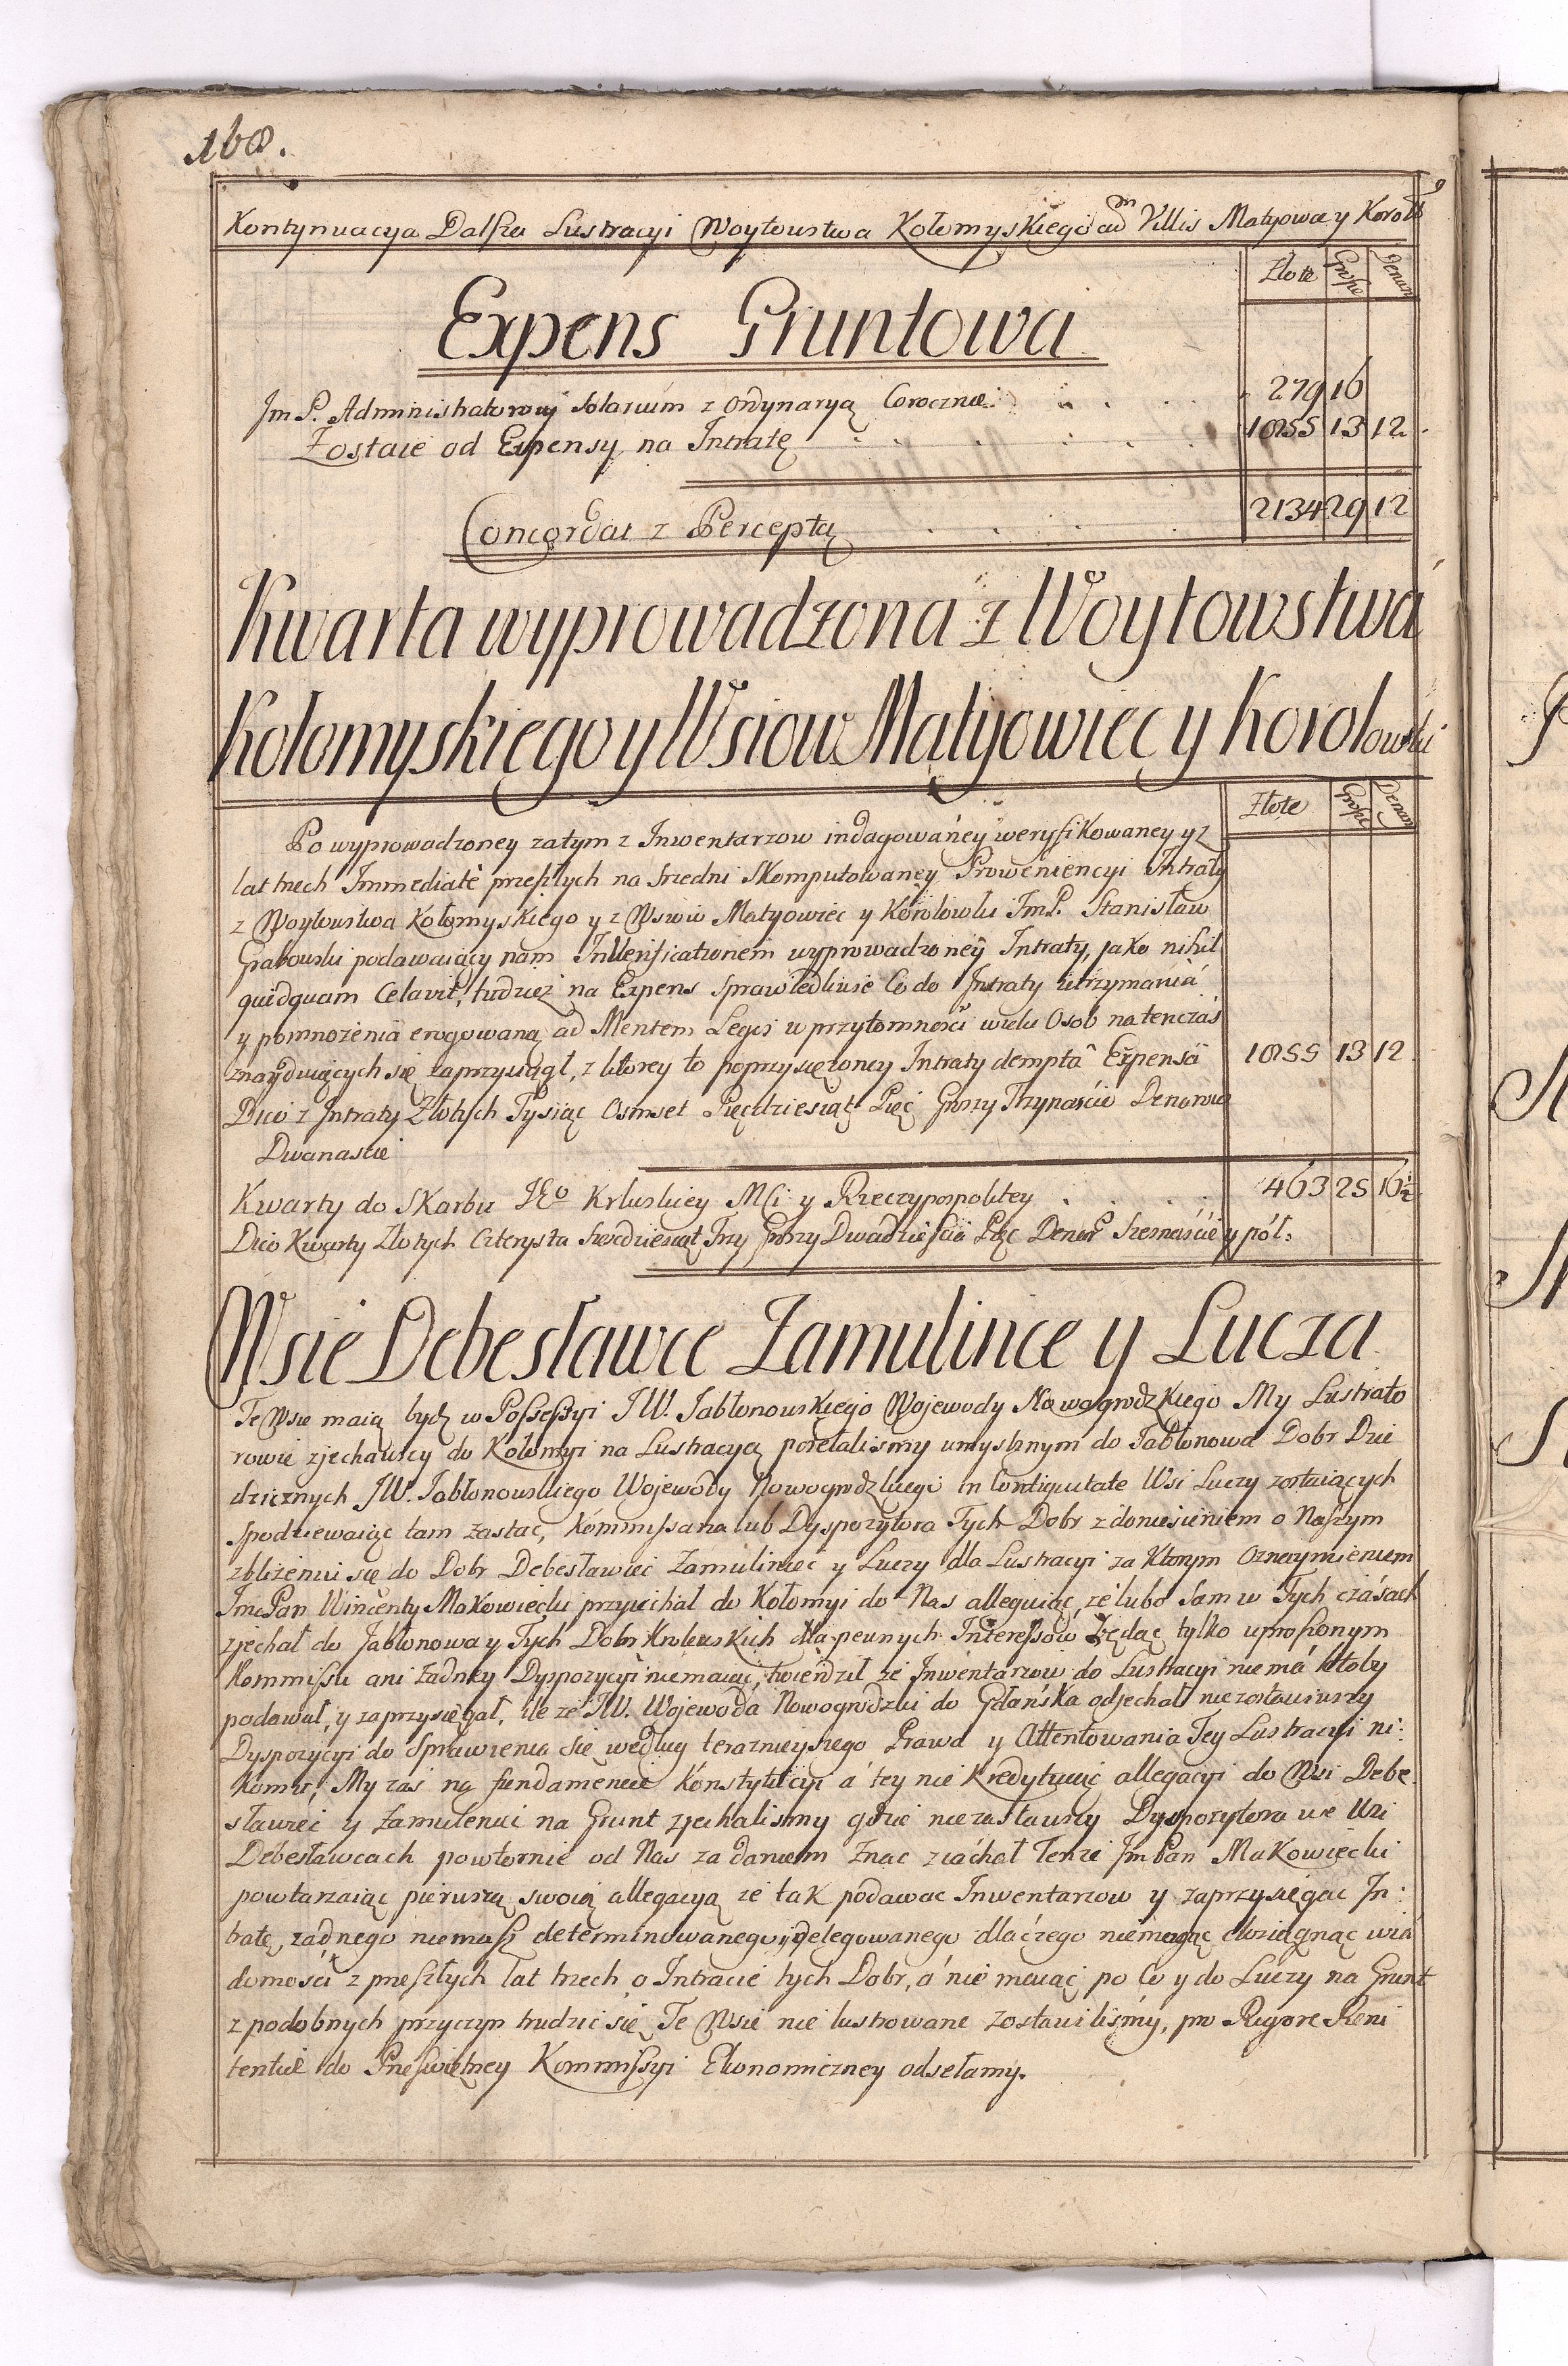 168.
Kontynuacya Dalsza Lustracyi Woytowstwa Kołomyskiego cum Villis Matyowce y Korol
Złote Grosze Denar
Expens Gruntowa
Jm P. Administratorowi Solarium z Ordynaryą Corocznie . . . 279 16
Zostaie od Expensy na Intratę . . . . . . 1855 13 12
Concordat z Perceptą . . . . 2134 29 12
Kwarta wyprowadzona z Woytowstwa
Kołomyskiego y Wsiow Matyowiec y Korolowki
Złote Grosze Denar
Po wyprowadzoney zatym z Inwentarzow indagowaney weryfikowaney y z
lat trzech Immediate przeszłych na sredni Skomputowaney Proweniencyi Intraty
z Woytowstwa Kołomyskiego y z Wsiow Matyowiec y Korolowki JmP. Stanisław
Grabowski podawaiący nam In Verificationem wyprowadzoney Intraty, jako nihil
quidquam Celavit, tudziez na Expens sprawiedliwie Co do Intraty utrzymania
y pomnożenia erogowaną, ad Mentem Legis w przytomności wielu Osob natenczas
znayduiących się zaprzysiągł, z ktorey to poprzysiężoney Intraty dempta Expensa 1855 13 12
Dico z Intraty Złotych Tysiąc Osmset Pięcdziesiąt Pięć Groszy Trzynaście Denarow
Dwanascie
Kwarty do Skarbu JKo Krluskiey Mci y Rzeczypospolitey . . . . 463 25 16½
Dico Kwarty Złotych Czterysta Szescdziesiąt Trzy Groszy Dwadziescia Pięc Denar Szesnaście y pół:
Wsie Debesławce Zamulince y Lucza
Te Wsie maią bydz w Possessyi JW. Jabłonowskiego Wojewody Nowogrodzkiego My Lustrato
rowie zjechawszy do Kołomyi na Lustracyą posełalismy umyslnym do Jabłonowa Dobr Dzie
dzicznych JW. Jabłonowskiego Wojewody Nowogrodzkiego in Contiguitate Wsi Luczy zostaiących
spodziewaiąc tam zastac, Kommissarza lub Dyspozytora Tych Dobr z doniesieniem o Naszym
zbliżeniu się do Dobr Debesławiec Zamuliniec y Luczy dla Lustracyi za Ktorym Oznaymieniem
Jmc Pan Wincenty Makowiecki przyiechał do Kołomyi do Nas alleguiąc, ze lubo sam w Tych czasach
zjechał do Jabłonowa y Tych Dobr Krolewskich dla pewnych Interessow będąc tylko uproszonym
Kommissu ani żadney Dyspozycyi niemaiąc, twierdził ze Inwentarzow do Lustracyi niema ktoby
podawał, y zaprzysięgał, ile ze JW. Wojewoda Nowogrodzki do Gdańska odjechał niezostawiwszy
Dyspozycyi do Sprawienia się według teraznieyszego Prawa y Attentowania Tey Lustracyi ni:
komu; My zas na fundamencie Konstytucyi a tey nie Kredytuiąc allegacyi do Wsi Debe
sławiec y Zamuleniec na Grunt zjechalismy gdzie niezastawszy Dyspozytora we Wsi
Debesławcach powtornie od Nas za daniem znac ziachał Tenze Jm Pan Makowiecki
powtarzaiąc pierwszą swoią allegacyą ze tak podawac Inwentarzow y zaprzysięgac In:
tratę, zadnego niemasz determinowanego, y delegowanego dla czego niemogąc dosięgnąc wia
domosci z przeszłych lat trzech o Intracie tych Dobr, a nie maiąc po Co y do Luczy na Grunt
z podobnych przyczyn trudzic się Te Wsie nie lustrowane zostawilismy, pro Rigore Reni
tentiæ do Prześwietney Kommissyi Ekonomiczney odsełamy.